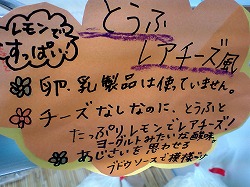 レモンで
すっぱい!
とうふ
レアチーズ風
卵、乳製品は使っていません。
チーズなしなのに、とうふと
たっぷりレモンでレアチーズ!
ヨーグルトみたいな酸味。
あじさいを思わせる
ブドウソースで模様